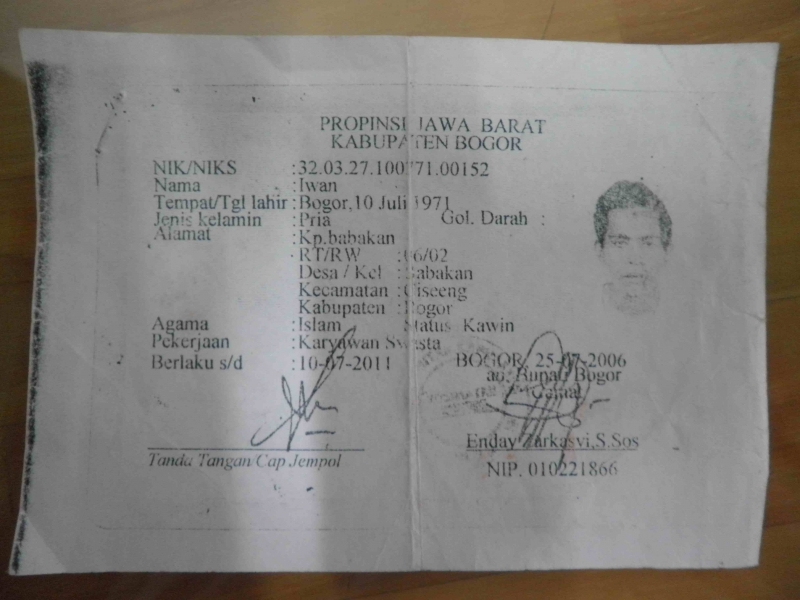 PROPINSI JAWA BARAT
KABUPATEN BOGOR
NIK/NIKS :32.03.27.100771.00152
Nama :Iwan
Tempat/Tgl lahir :Bogor,10 Juli 1971
Jenis kelamin :Pria Gol. Darah :
Alamat :Kp.babakan
RT/RW :06/02
Desa / Kel :Babakan
Kecamatan :Ciseeng
Kabupaten :Bogor
Agama :Islam Status Kawin
Pekerjaan :Karyawan Swasta
Berlaku s/d :10-07-2011
BOGOR, 25-07-2006
an. Bupati Bogor
Camat
Enday Zarkasyi,S.Sos
Tanda Tangan/Cap Jempol
NIP. 010221866